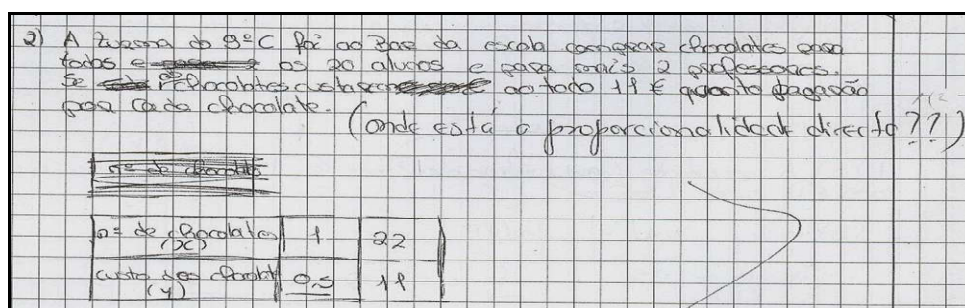 2) A turma do 9º C foi ao Bar da escola comprar chocolates para
todos e os 20 alunos e para mais 2 professores.
Se os chocolates custarem ao todo 11 € quanto pagarão
por cada chocolate.
(onde está a proporcionalidade directa??)
nº de chocolates
nº de chocolates (x) 1 22
custo dos chocolat (y) 0,5 11